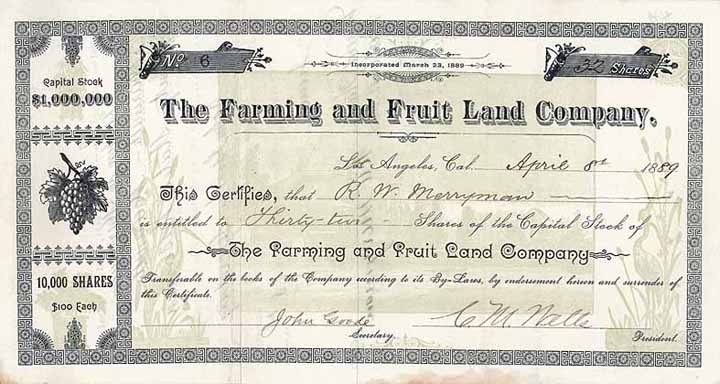 No. 6
Incorporated March 23, 1889
32 Shares
Capital Stock
$1,000,000
The Farming and Fruit Land Company.
Los Angeles, Cal. April 8th 1889
This Certifies, that R. W. Merryman
is entitled to Thirty-two Shares of the Capital Stock of
The Farming and Fruit Land Company
10,000 SHARES
$100 Each
Transferable on the books of the Company according to its By-Laws, by endorsement hereon and surrender of
this Certificate.
John Goode C M Wells
Secretary. President.